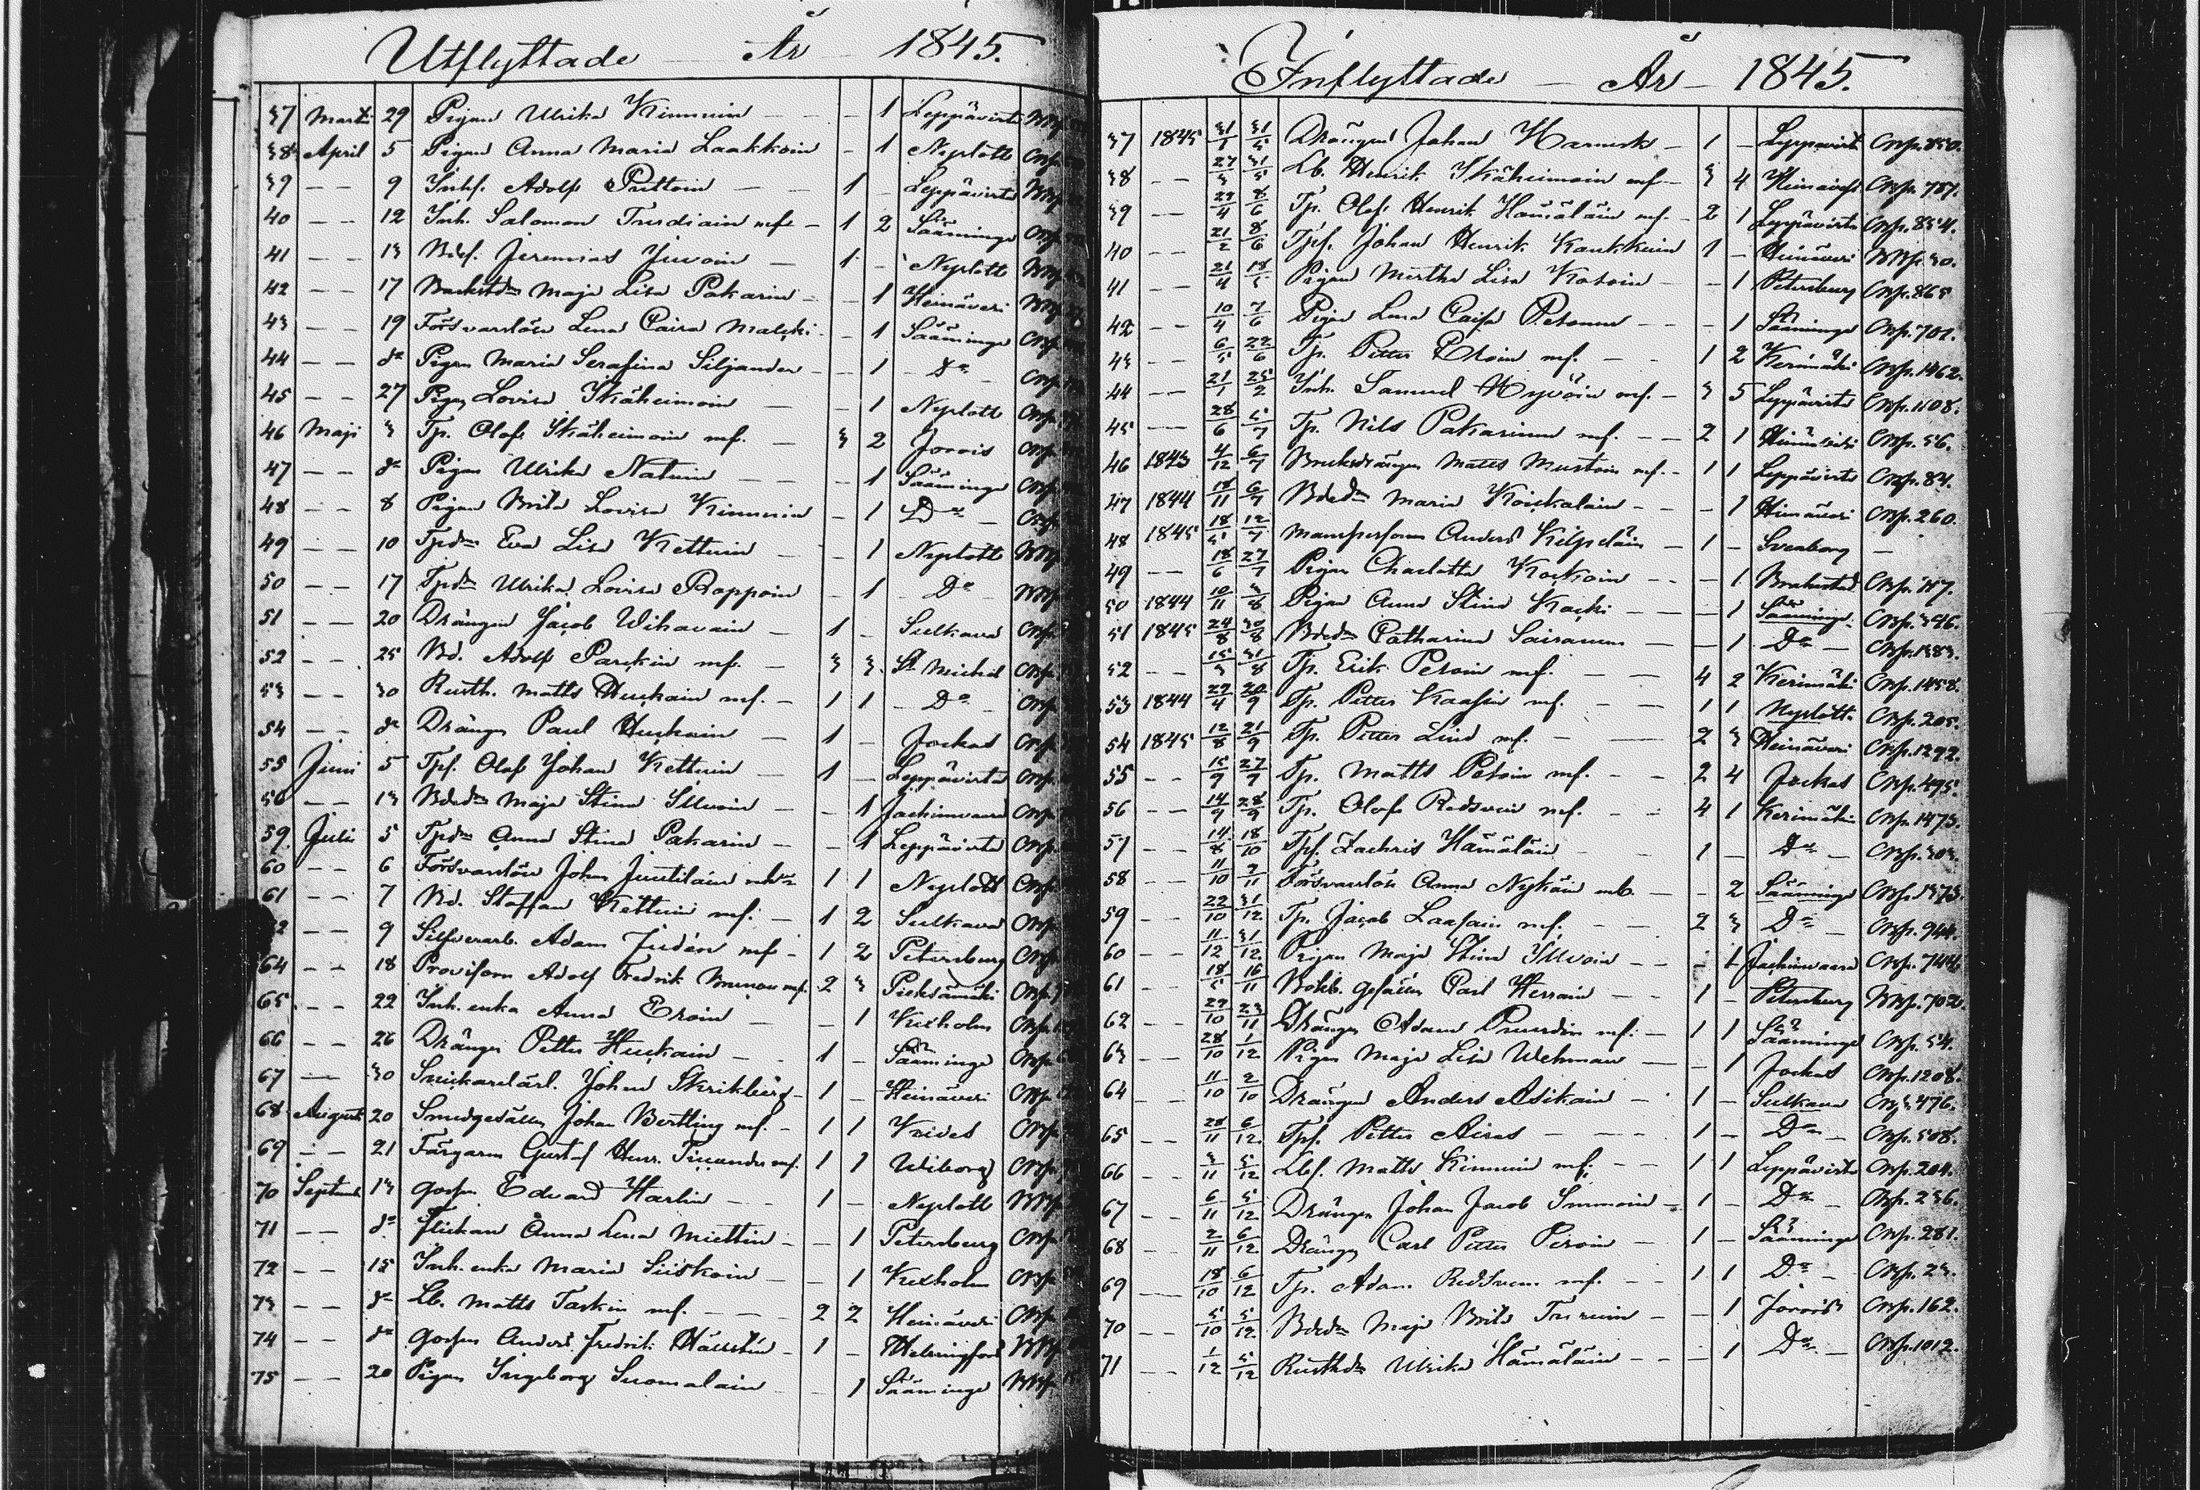 Utflyttade — År — 1845.
37 Martii 29 Pigan Ulrika Kinnuin — — 1 Leppävirta
38 April 5 Pigan Anna Maria Laakkoin — 1 Nyslott
39 — — 9 Inhs. Adolf Puttoin — 1 — Leppävirta
40 — — 12 Inh. Salomon Turdiain mf. — 1 2 Sääminge
41 — — 13 Bdsf. Jeremias Juvoin — 1 — Nyslott
42 — — 17 Maja Lisa Pakarin — — 1 Heinäveri
43 — — 19 Försvarslösa Lena Caisa Malcki — 1 Sääminge
44 — — do Pigan Maria Serafina Siljander — — 1 Do
45 — — 27 Pigan Lovisa Ikäheimoin — — 1 Nyslott
46 Maji 3 Tp. Olof Ikäheimoin mf. — 3 2 Jorois
47 — — do Pigan Ulrika Natuin — — 1 Sääminge
48 — — 8 Pigan Brita Lovisa Kinnuin — 1 Do
49 — — 10 Tpdr Eva Lisa Kettuin — — 1 Nyslott
50 — — 17 Tpdr Ulrika Lovisa Roppoin — 1 Do
51 — — 20 Drängen Jacob Wihavain — 1 — Sulkava
52 — — 25 Bd. Adolf Parckin mf. — 3 3 St Michel
53 — — 30 Rusth. Matts Huckain mf. — 1 1 Do
54 — — do Drängen Paul Huckain — 1 — Jockas
55 Juni 5 Tpf. Olof Johan Kettuin — 1 — Leppävirta
56 — — 13 Bdedr Maja Stina Silvoin — — 1 Jachimvaara
59 Juli 5 Tpdr Anna Stina Pakarin — — 1 Leppävirta
60 — — 6 Försvarslöse Johan Juutilain 1 1 Nyslott
61 — — 7 Bd. Staffan Kettuin mf. — 1 2 Sulkava
9 Silfverarb. Adam Judén mf — 1 2 Petersburg
64 — — 18 Provisorn Adolf Fredrik Brunou mf. 2 3 Pieksämäki
65 — — 22 Inh. enka Anna Eroin — — 1 Kexholm
66 — — 26 Drängen Petter Huckain — 1 — Sääminge
67 — 30 Snickarelärl. Johan Skrikberg — 1 — Heinäveri
68 August 20 Smedgesällen Johan Bertling mf. — 1 1 Kides
69 — — 21 Färgaren Gustaf Henr. Ticander mf. 1 1 Wiborg
70 Septemb 13 Gossen Edvard Harlin — — 1 — Nyslott
71 — — do Flickan Anna Lena Miettin — — 1 Petersburg
72 — — 15 Inh. enka Maria Siiskoin — — 1 Kexholm
73 — — do Lb. Matts Taskin mf. — — 2 2 Heinäveri
74 — — do Gossen Anders Fredrik Hällstén — 1 — Helsingfors
75 — — 20 Pigan Ingeborg Suomalain — — 1 Sääminge
Inflyttade — År — 1845.
37 1845 31/1 31/5 Drängen Johan — 1 — Leppävirta 850.
38 — — 27/3 31/5 Lb. Henrik Ikäheimoin mf — 3 4 Heinäveri 757.
39 — — 29/4 8/6 Tp. Olof Henrik Hämäläin mf. — 2 1 Leppävirta 854.
40 — — 21/2 8/6 Tpf. Johan Henrik Kaukkuin 1 — Heinäveri 30.
41 — — 21/4 18/5 Pigan Mertha Lisa Kosoin — — 1 Petersburg 865
42 — — 10/4 7/6 Pigan Lena Caisa Petonen — — 1 Sääminge 701.
43 — — 6/5 22/6 Tp. Petter Eroin mf. — — 1 2 Kerimäki 1462.
44 — — 21/1 25/2 Inh. Samuel Hyvöin mf. — 3 5 Leppävirta 1108.
45 — — 28/6 5/7 Tp. Nils Pakarinen mf. — — 2 1 Heinäveri 56.
46 1843 4/12 6/7 Bruksdrängen Matts Mustoin mf. — 1 1 Leppävirta 84.
47 1844 18/11 6/7 Bdedr Maria Koickalain — — 1 Heinäveri 260.
48 1845 18/5 12/7 Mansperson Anders Kilpeläin — 1 — Sveaborg —
49 — — 18/6 27/7 Pigan Charlotta Kockoin — — 1 Brahestad 157.
50 1844 10/11 3/8 Pigan Anna Stina Kacki — — 1 Sääminge 346.
51 1845 24/8 30/8 Bdedr Catharina Sairanen — — 1 Do 1383.
52 — — 15/3 31/8 Tp. Erik Peroin mf. — — 4 2 Kerimäki 1458.
53 1844 29/4 20/9 Tp. Petter Kaasin mf. — — 1 1 Nyslott 205.
54 1845 12/8 21/9 Tp. Petter Lind mf. — — 2 3 Heinäveri 1292.
55 — — 15/9 27/9 Tp. Matts Petoin mf. — — 2 4 Jockas 495.
56 — — 14/9 28/9 Tp. Olof Redsvin mf. — — 4 1 Kerimäki 1473.
57 — — 14/8 18/10 Tpf. Zachris Hämäläin — — 1 — Do 303.
58 — — 11/10 2/11 Försvarslösa Anna Nykäin mb. — — 2 Sääminge 1373.
59 — — 22/10 31/12 Tp. Jacob Laasain mf. — — 2 3 Do 944.
60 — — 11/12 31/12 Pigan Maja Stina Silvoin — — 1 Jachimvaara 744
61 — — 18/5 16/11 Bokb. gesällen Carl Herrain — — 1 — Petersburg 702.
62 — — 29/10 23/11 Drängen Adam mf. — 1 1 Sääminge 54.
63 — — 28/10 1/12 Pigan Maja Lisa Wehman — — 1 Jockas 1208.
64 — — 11/10 2/10 Drängen Anders Asikain — 1 — Sulkava 476.
65 — — 28/11 6/12 Tpf. Petter Airas — — — 1 — Do 508.
66 — — 3/11 5/12 Lbf. Matts Kinnuin mf. — — 1 1 Leppävirta 204.
67 — — 6/11 5/12 Drängen Johan Jacob Immoin — 1 — Do 236.
68 — — 2/11 6/12 Drängen Carl Petter Piroin — 1 — Sääminge 281.
69 — — 18/10 6/12 Tp. Adam Redsven mf. — — 1 1 Do 23.
70 — — 5/10 5/12 Bdedr Maja Brita — — 1 Jorois 162.
71 — — 1/12 5/12 Rusthdr Ulrika Hämäläin — — — 1 Do 1012.